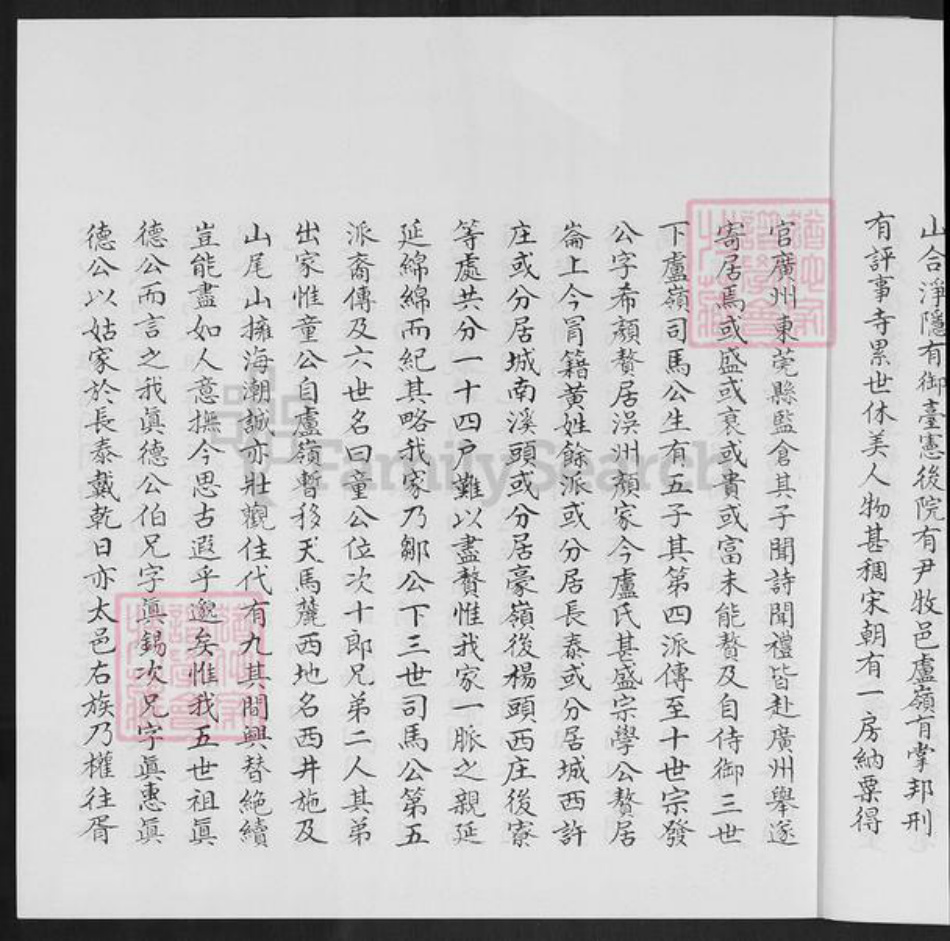 山合淨隱有御臺憲後院有尹牧邑盧嶺有掌邦刑
有評事寺累世休美人物甚稠宋朝有一房納粟得
官廣州東莞縣監倉其子聞詩聞禮皆赴廣州舉遂
寄居焉或盛或衰或貴或富未能贅及自侍御三世
下盧嶺司馬公生有五子其第四派傳至十世宗發
公字希顏贅居浯州顏家今盧氏甚盛宗學公贅居
崙上今冐籍黃姓餘派或分居長泰或分居城西許
庄或分居城南溪頭或分居豪嶺後楊頭西庄後寮
等處共分一十四户難以盡贅惟我家一脈之親延
延綿綿而紀其略我家乃鄒公下三世司馬公第五
派裔傳及六世名曰童公位次十郎兄弟二人其弟
出家惟童公自盧嶺暫移天馬麓西地名西井施及
山尾山擁海潮誠亦壯觀住代有九其間興替絶續
豈能盡如人意撫今思古遐乎邈矣惟我五世祖眞
德公而言之我眞德公伯兄字眞錫次兄字眞惠眞
德公以姑家於長泰戴乾日亦太邑右族乃權往胥
FamilySearch